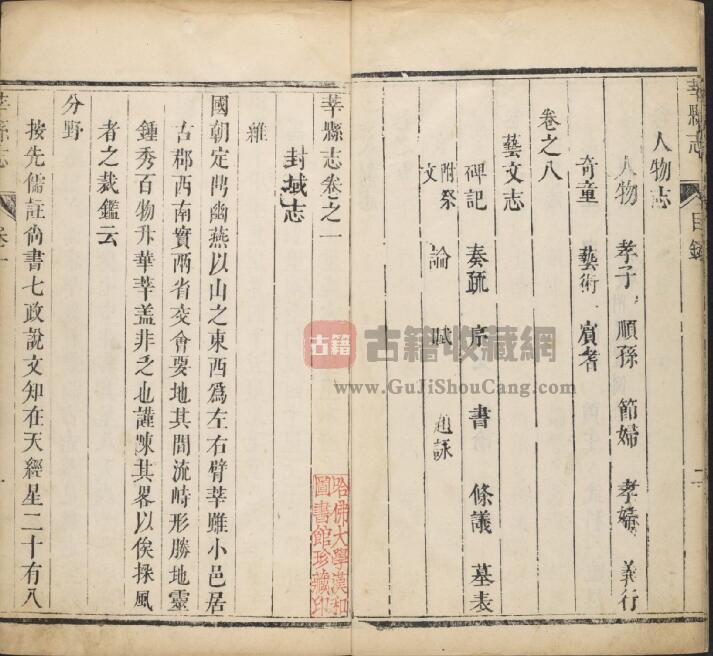 莘縣志
目錄
二
人物志
人物 孝子 順孫 節婦 孝婦 義行
奇童 藝術 賓耆
卷之八
藝文志
碑記 奏疏 序 書 條議 墓表
祭文附 論 賦 題詠
莘縣志卷之一
封域志
國朝定鼎幽燕以山之東西爲左右臂莘雖小邑居
古郡西南實兩省交會要地其間流峙形勝地靈
鍾秀百物升華莘盖非乏也謹陳其畧以俟採風
者之裁鑑云
分野
按先儒註尙書七政說文知在天經星二十有八
莘縣志
卷一
古籍
古籍收藏網
www.GuJiShouCang.com
哈佛大學漢和
圖書館珍藏印